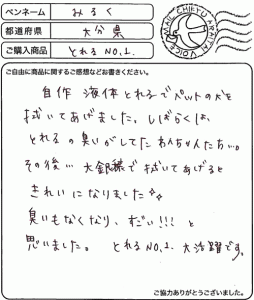 ペンネーム みるく
都道府県 大分県
ご購入商品 とれるNO.1.
MAIL CHIEYU ARAITAI VOICE
ご自由に商品に関するご感想などお書きください。
自作 液体とれるでペットの犬を
拭いてあげました。しばらくは、
とれるの臭いがしてたわんちゃんたち…。
その後… 大銀穣で拭いてあげると
きれいになりました
臭いもなくなり、すごい!!! と
思いました。 とれるNO.1. 大活躍です。
ご協力ありがとうございました。